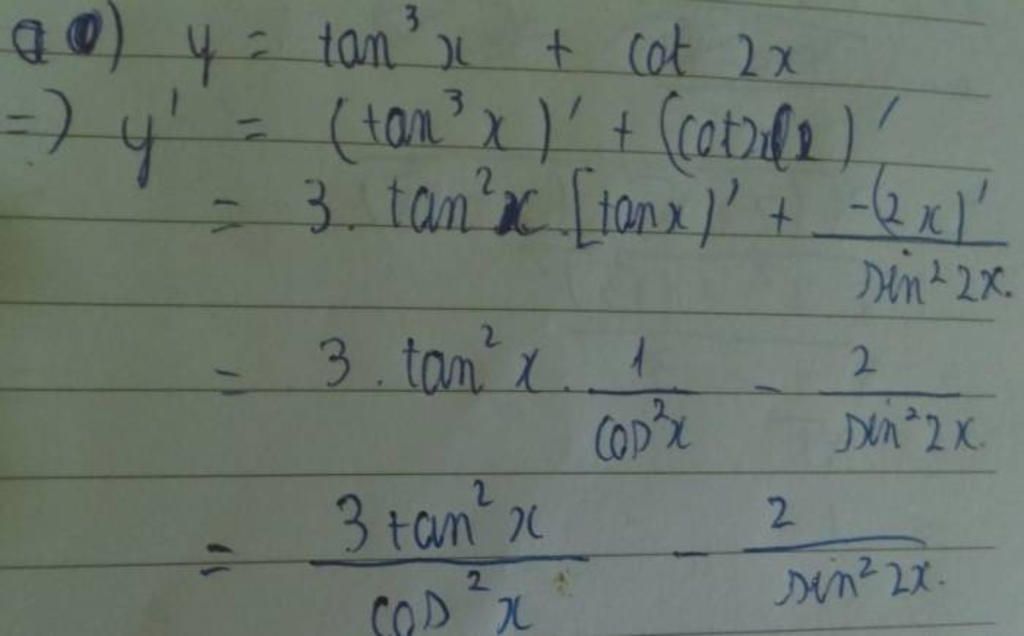 a) y = tan³x + cot 2x
=) y' = (tan³x)' + (cot2x)'
= 3. tan²x.[tanx)' + -(2x)'/sin²2x.
= 3. tan²x. 1/cos²x - 2/sin²2x.
= 3tan²x/cos²x - 2/sin²2x.